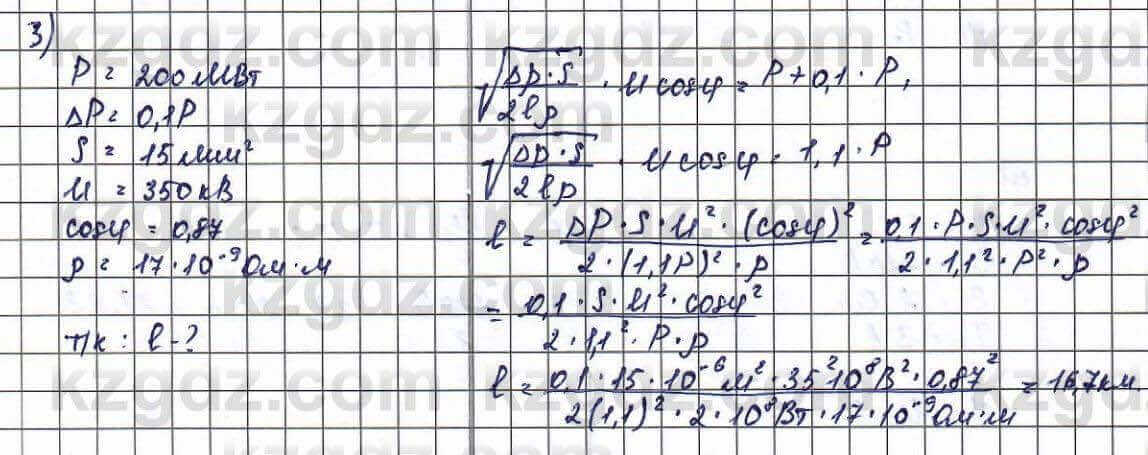 3)
P = 200 МВт
ΔP = 0,1P
S = 15 мм²
U = 350 кВ
cosφ = 0,87
ρ = 17·10⁻⁹ Ом·м
т/к: l - ?
√(ΔP·S / 2lρ) · U cosφ = P + 0,1·P,
√(ΔP·S / 2lρ) · U cosφ = 1,1·P
l = ΔP·S·U²·(cosφ)² / 2·(1,1P)²·ρ = 0,1·P·S·U²·cosφ² / 2·1,1²·P²·ρ
= 0,1·S·U²·cosφ² / 2·1,1²·P·ρ
l = 0,1·15·10⁻⁶ м²·35²10⁸В²·0,87² / 2(1,1)²·2·10⁸Вт·17·10⁻⁹Ом·м = 16,7км.
kzgdz.com